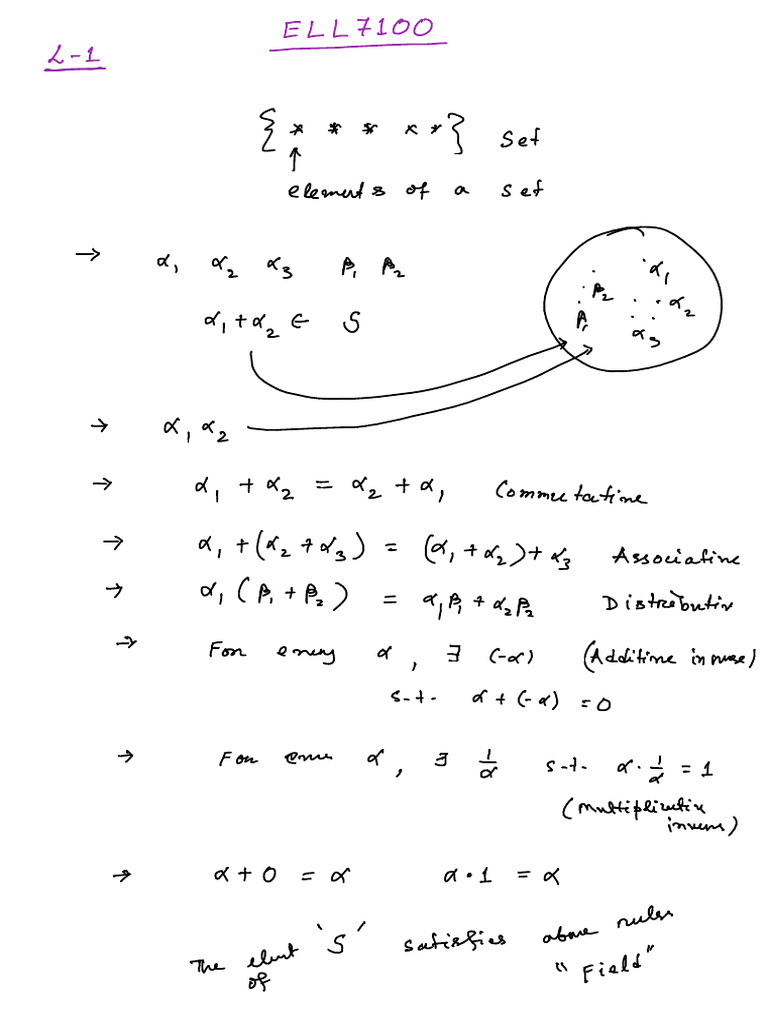 ELL7100
L-1
{ * * * * * } Set
elements of a set
→ α₁ α₂ α₃ β₁ β₂
α₁ + α₂ ∈ S
α₁
β₂
α₂
β₁
α₃
→ α₁ α₂
→ α₁ + α₂ = α₂ + α₁ Commutative
→ α₁ + (α₂ + α₃) = (α₁ + α₂) + α₃ Associative
→ α₁ (β₁ + β₂) = α₁β₁ + α₂β₂ Distributiv
→ For every α, ∃ (-α) (Additive inverse)
s.t. α + (-α) = 0
→ For α, ∃ 1/α s.t. α · 1/α = 1
(multiplicative
inverse)
→ α + 0 = α α · 1 = α
The elemt 'S' satisfies above rules
of "Field"